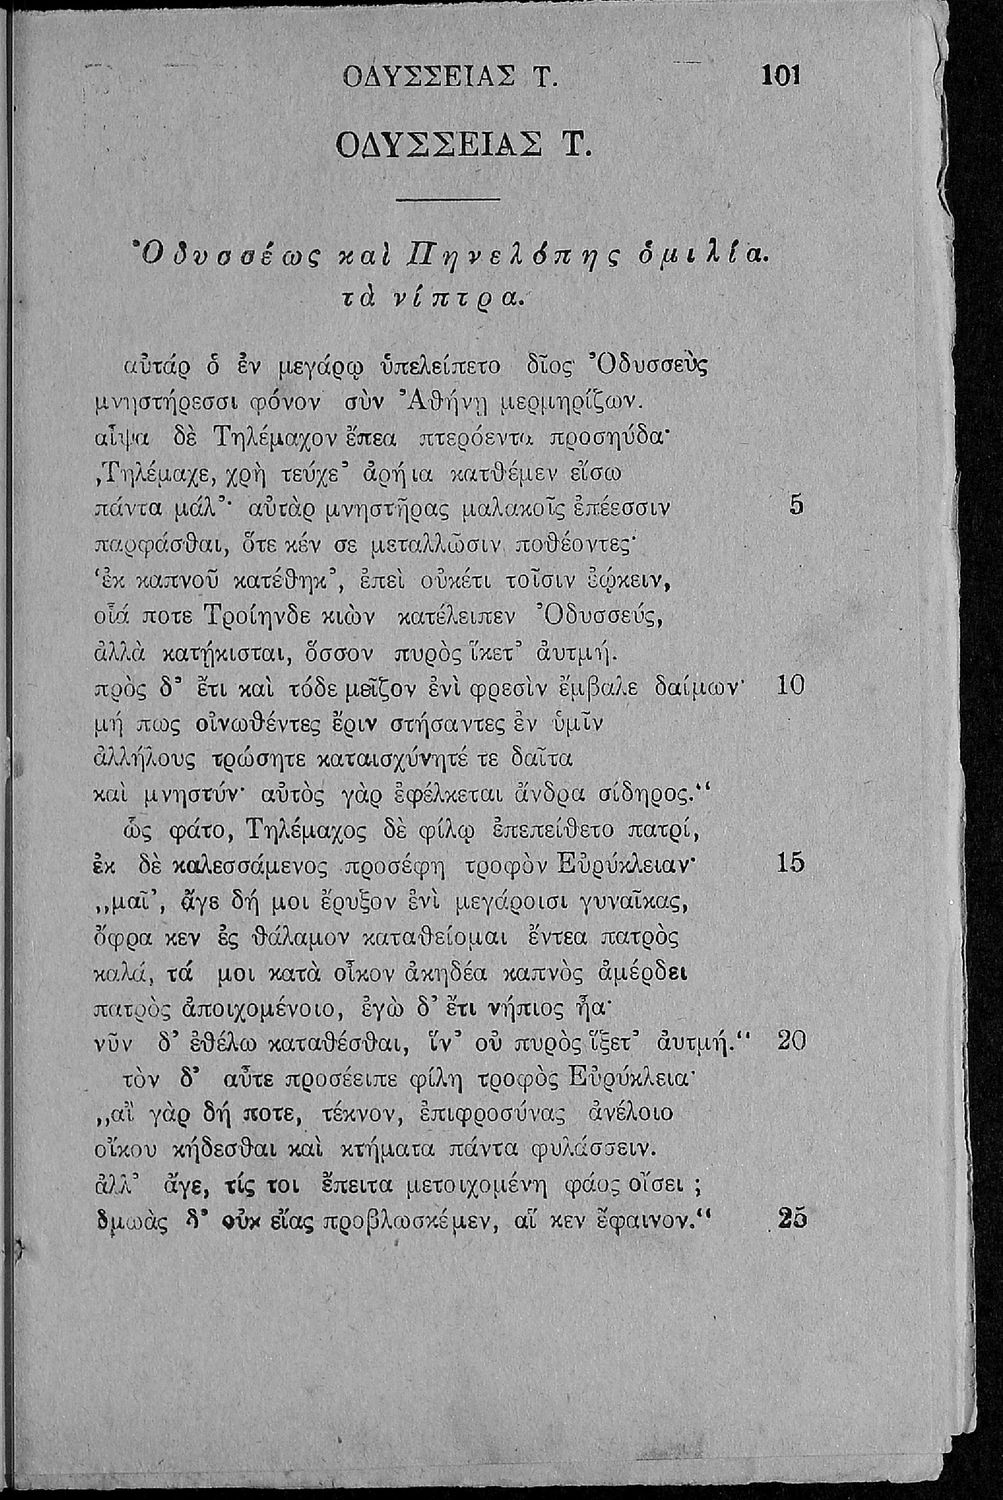 ΟΔΥΣΣΕΙΑΣ Τ. 101
ΟΔΥΣΣΕΙΑΣ Τ.
Ὀδυσσέως καὶ Πηνελόπης ὁμιλία.
τὰ νίπτρα.
αὐτάρ ὁ ἐν μεγάρῳ ὑπελείπετο δῖος Ὀδυσσεὺς
μνηστήρεσσι φόνον σὺν Ἀθήνῃ μερμηρίζων.
αἶψα δὲ Τηλέμαχον ἔπεα πτερόεντα προσηύδα·
„Τηλέμαχε, χρὴ τεύχε' ἀρήια κατθέμεν εἴσω
πάντα μάλ'· αὐτὰρ μνηστῆρας μαλακοῖς ἐπέεσσιν 5
παρφάσθαι, ὅτε κέν σε μεταλλῶσιν ποθέοντες·
‘ἐκ καπνοῦ κατέθηκ', ἐπεὶ οὐκέτι τοῖσιν ἐῴκειν,
οἷά ποτε Τροίηνδε κιὼν κατέλειπεν Ὀδυσσεύς,
ἀλλὰ κατῄκισται, ὅσσον πυρὸς ἵκετ' ἀυτμή.
πρὸς δ' ἔτι καὶ τόδε μεῖζον ἐνὶ φρεσὶν ἔμβαλε δαίμων· 10
μή πως οἰνωθέντες ἔριν στήσαντες ἐν ὑμῖν
ἀλλήλους τρώσητε καταισχύνητέ τε δαῖτα
καὶ μνηστύν· αὐτὸς γὰρ ἐφέλκεται ἄνδρα σίδηρος.“
ὣς φάτο, Τηλέμαχος δὲ φίλῳ ἐπεπείθετο πατρί,
ἐκ δὲ καλεσσάμενος προσέφη τροφὸν Εὐρύκλειαν· 15
„μαῖ', ἄγε δή μοι ἔρυξον ἐνὶ μεγάροισι γυναῖκας,
ὄφρα κεν ἐς θάλαμον καταθείομαι ἔντεα πατρὸς
καλά, τά μοι κατὰ οἶκον ἀκηδέα καπνὸς ἀμέρδει
πατρὸς ἀποιχομένοιο, ἐγὼ δ' ἔτι νήπιος ἦα·
νῦν δ' ἐθέλω καταθέσθαι, ἵν' οὐ πυρὸς ἵξετ' ἀυτμή.“ 20
τὸν δ' αὖτε προσέειπε φίλη τροφὸς Εὐρύκλεια·
„αἲ γὰρ δή ποτε, τέκνον, ἐπιφροσύνας ἀνέλοιο
οἴκου κήδεσθαι καὶ κτήματα πάντα φυλάσσειν.
ἀλλ' ἄγε, τίς τοι ἔπειτα μετοιχομένη φάος οἴσει ;
δμωὰς δ' οὐκ εἴας προβλωσκέμεν, αἵ κεν ἔφαινον.“ 25